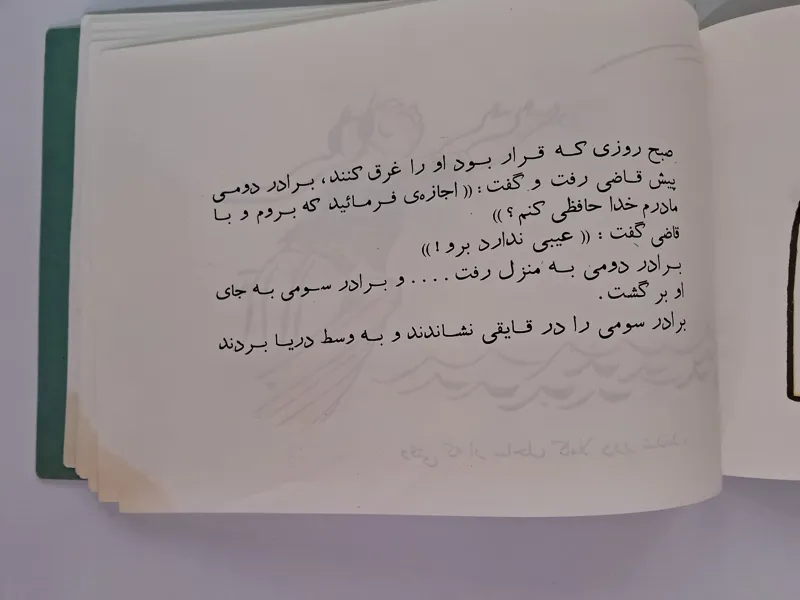 صبح روزی که قرار بود او را غرق کنند، برادر دومی
پیش قاضی رفت و گفت: (( اجازه‌ی فرمائید که بروم و با
مادرم خدا حافظی کنم؟ ))
قاضی گفت: (( عیبی ندارد برو! ))
برادر دومی به منزل رفت.... و برادر سومی به جای
او بر گشت.
برادر سومی را در قایقی نشاندند و به وسط دریا بردند